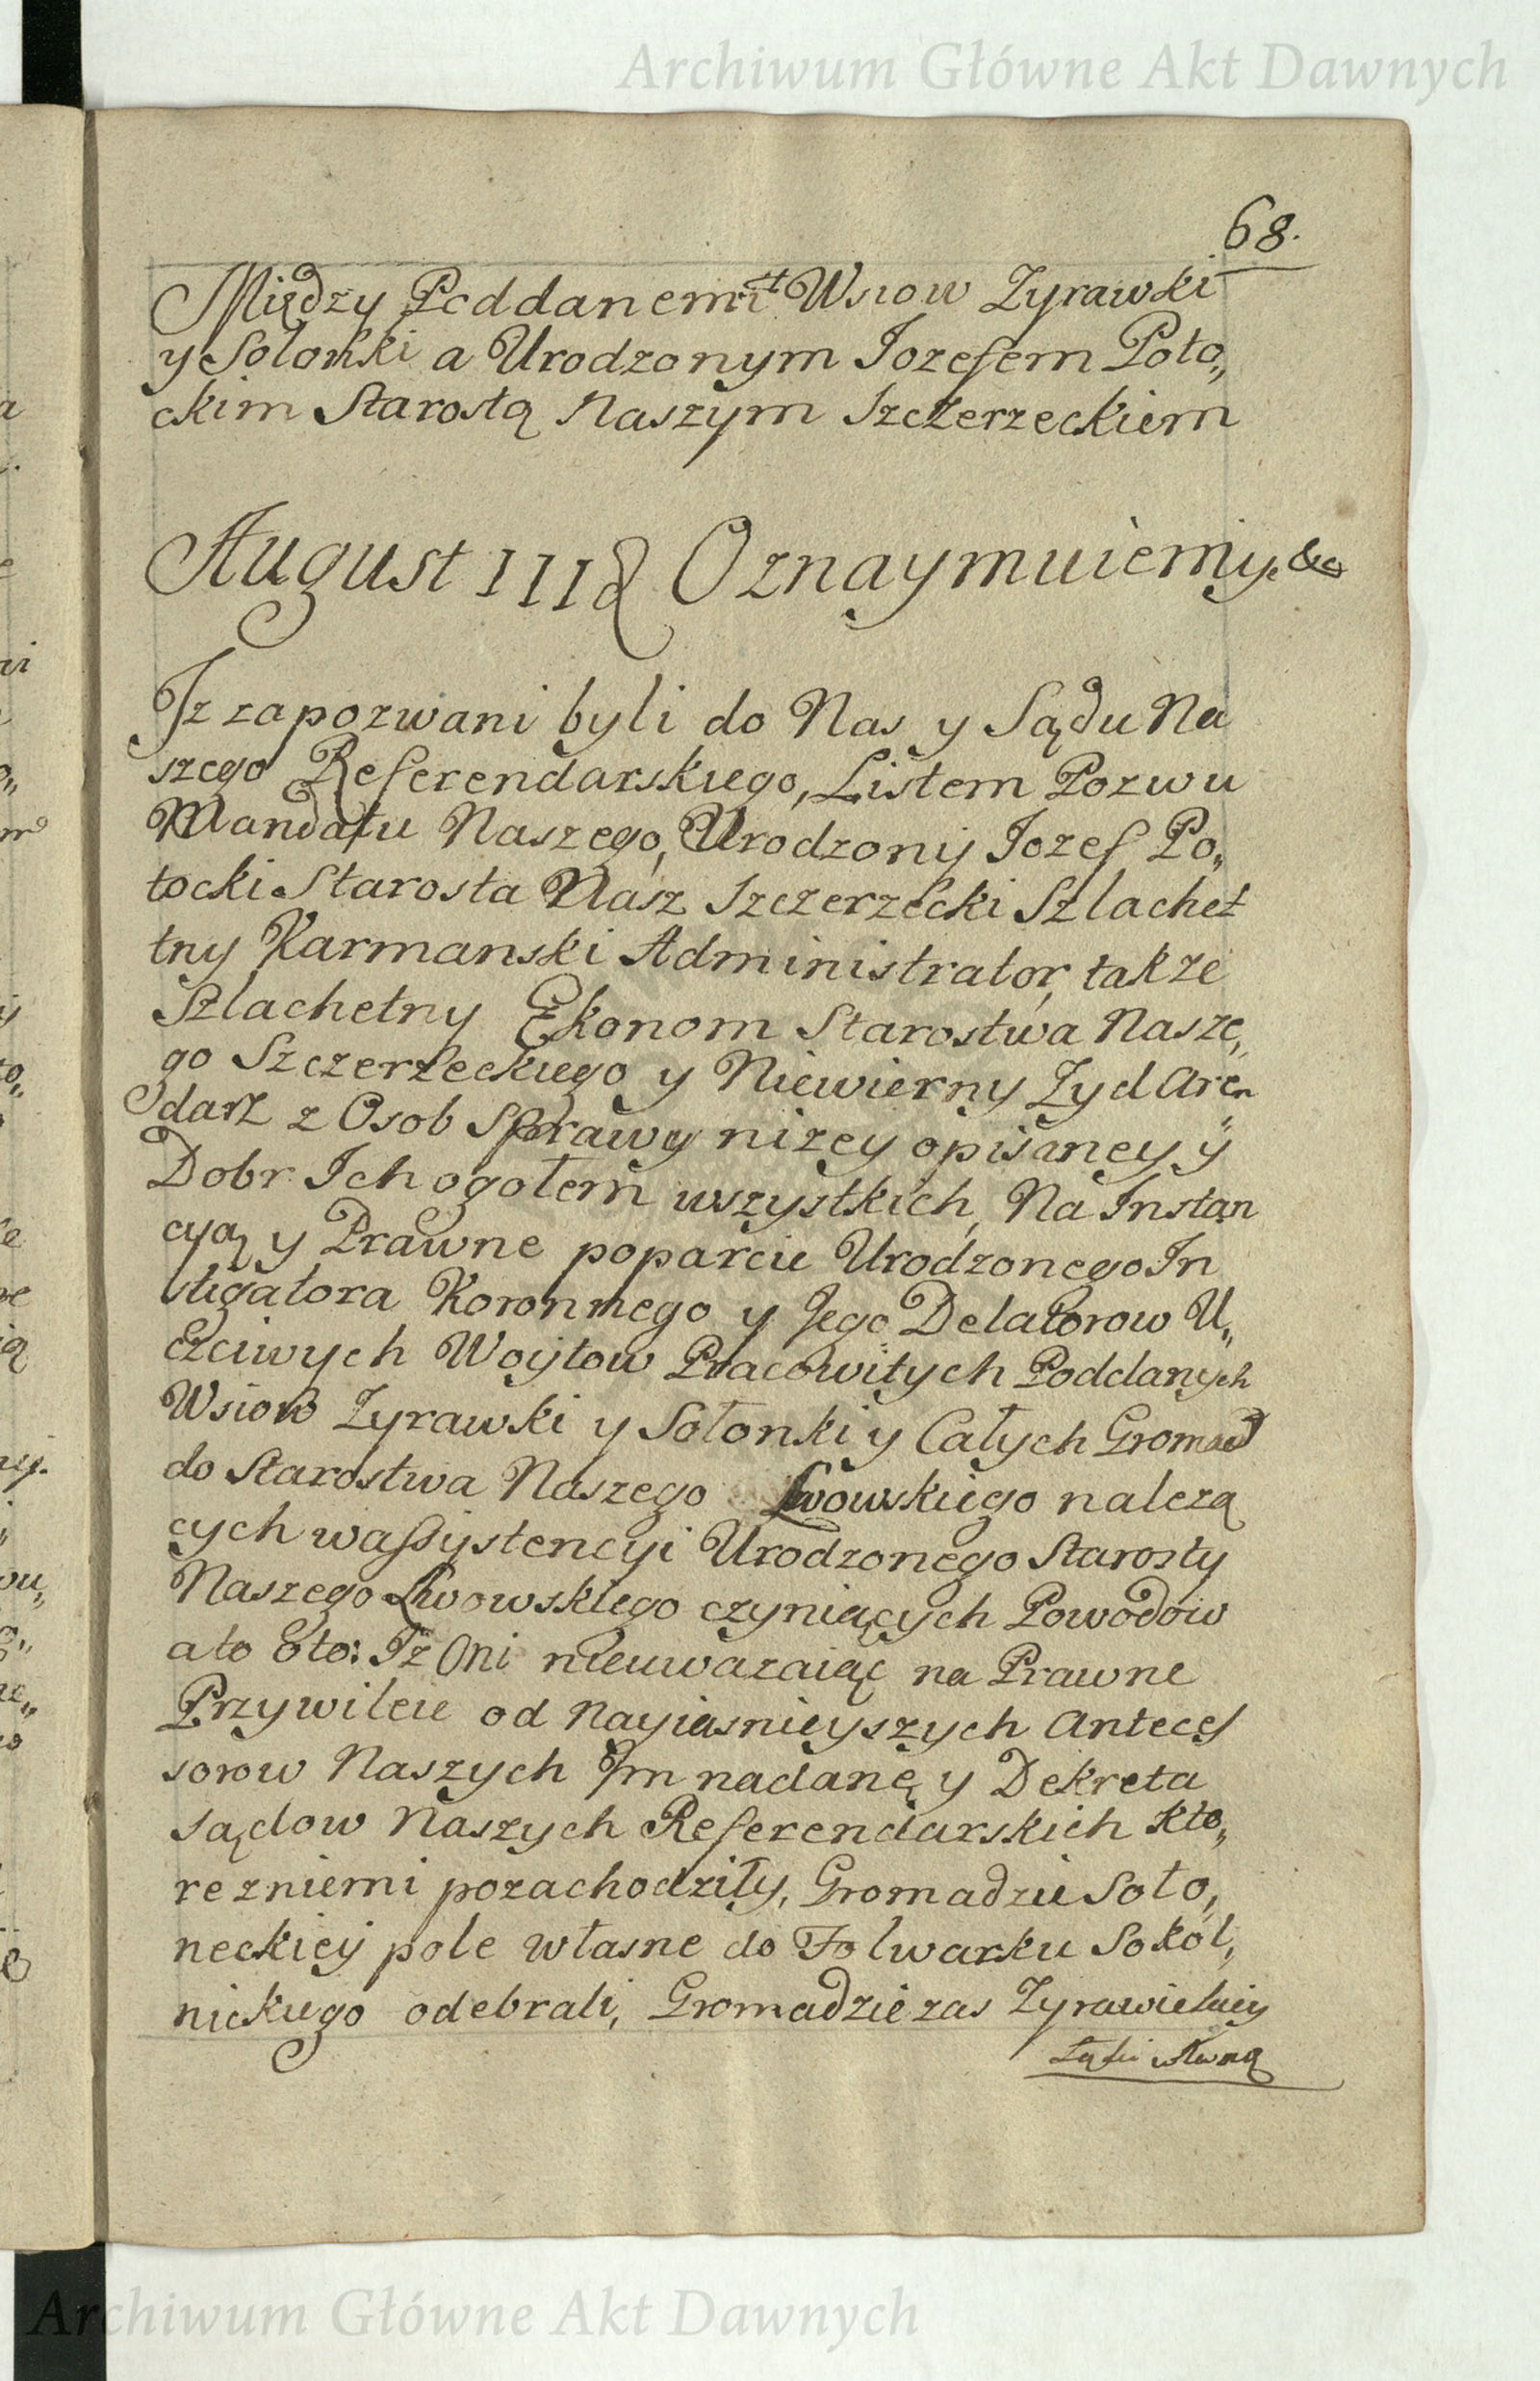 Archiwum Główne Akt Dawnych
68.
Między Poddanemi Wsiow Zyrawki
y Solonki a Urodzonym Jozefem Poto„
ckim Starostą Naszym Szczerzeckiem
August III Oznaymuiemy &c
Jz zapozwani byli do Nas y Sądu Na
szego Referendarskiego, Listem Pozwu
Mandatu Naszego, Urodzony Jozef Po„
tocki Starosta Nasz Szczerzecki Szlachet
tny Karmanski Administrator, takze
Szlachetny Ekonom Starostwa Nasze„
go Szczerzeckiego y Niewierny Zyd Aren
darz z Osob Sprawy nizey opisaney y
Dobr Ich ogołem wszystkich, Na Instan
cyą y Prawne poparcie Urodzonego In
stigatora Koronnego y Jego Delatorow U„
czciwych Woytow Pracowitych Poddanych
Wsiow Zyrawki y Sołonki y Całych Gromad
do Starostwa Naszego Lwowskiego nalezą
cych wassystencyi Urodzonego Starosty
Naszego Lwowskiego czyniących Powodow
a to oto: Jz Oni nieuwazaiąc na Prawne
Przywileie od Nayiasnieyszych Anteces
sorow Naszych Jm nadanę y Dekreta
Sądow Naszych Referendarskich kto„
re zniemi pozachodziły, Gromadzie Soło„
neckiey pole własne do Folwarku Sokol„
nickiego odebrali, Gromadzie zas Zyrawieckiey
Archiwum Główne Akt Dawnych